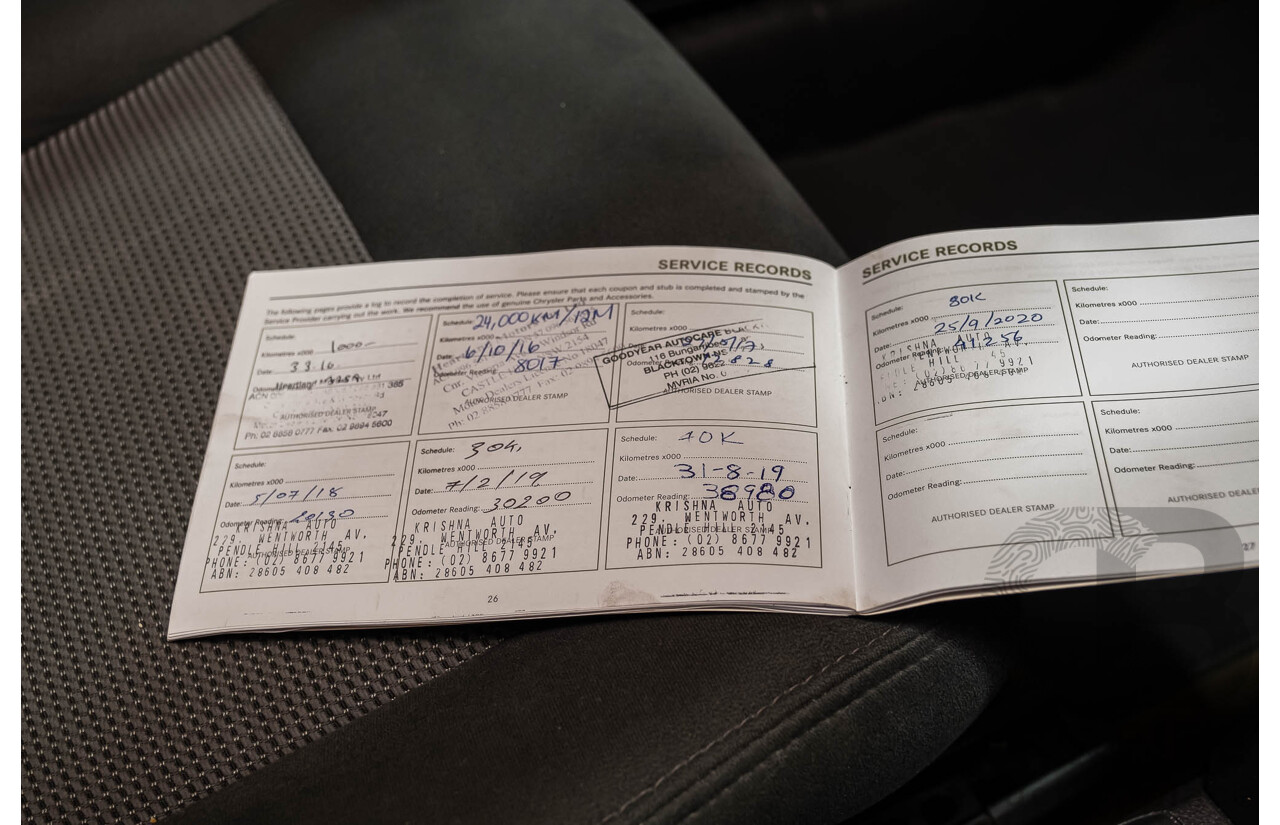 SERVICE RECORDS
The following pages provide a log to record the completion of service. Please ensure that each coupon and stub is completed and stamped by the
Service Provider carrying out the work. We recommend the use of genuine Chrysler Parts and Accessories.
Schedule:
Kilometres x000 1000
Date: 3 3.16
ACN
AUTHORISED DEALER STAMP
Ph. 02 8858 0777 Fax 02 9894 5600
Schedule: 24,000KM/12M
Kilometres x000
Date: 6/10/16
Odometer Reading: 8017
AUTHORISED DEALER STAMP
Schedule:
Kilometres x000
GOODYEAR AUTOCARE
BLACKTOWN
PH (02)
MVRIA No.
AUTHORISED DEALER STAMP
Schedule:
Kilometres x000
Date: 5/07/18
Odometer Reading:
KRISHNA AUTO
229, WENTWORTH AV.
PENDLE HILL 2145
AUTHORISED DEALER STAMP
PHONE: (02) 8677 9921
ABN: 28605 408 482
Schedule: 30k.
Kilometres x000
Date: 7/2/19
Odometer Reading: 30200
KRISHNA AUTO
229, WENTWORTH AV.
PENDLE HILL 2145
AUTHORISED DEALER STAMP
PHONE: (02) 8677 9921
ABN: 28605 408 482
Schedule: 40K
Kilometres x000
Date: 31-8-19
Odometer Reading: 38980
KRISHNA AUTO
229, WENTWORTH AV.
PENDLE HILL 2145
AUTHORISED DEALER STAMP
PHONE: (02) 8677 9921
ABN: 28605 408 482
26
SERVICE RECORDS
Schedule: 80K
Kilometres x000
Date: 25/9/2020
Odometer Reading: 41256
KRISHNA
WENTWORTH
HILL
AUTHORISED DEALER STAMP
Schedule:
Kilometres x000
Date:
Odometer Reading:
AUTHORISED DEALER STAMP
Schedule:
Kilometres x000
Date:
Odometer Reading:
AUTHORISED DEALER STAMP
Schedule:
Kilometres x000
Date:
Odometer Reading:
AUTHORISED DEALER
27